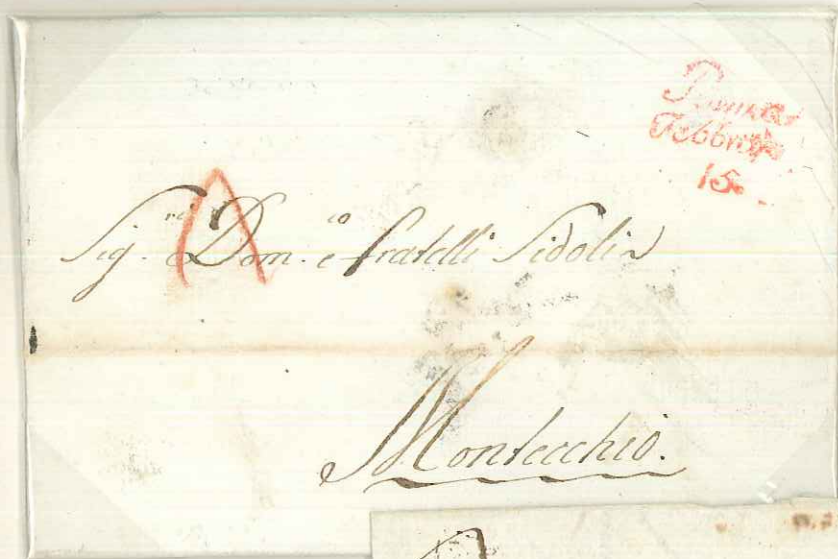 Febbraio
15.
Sig.ri Dom.co e fratelli Sidoli
Montecchio.